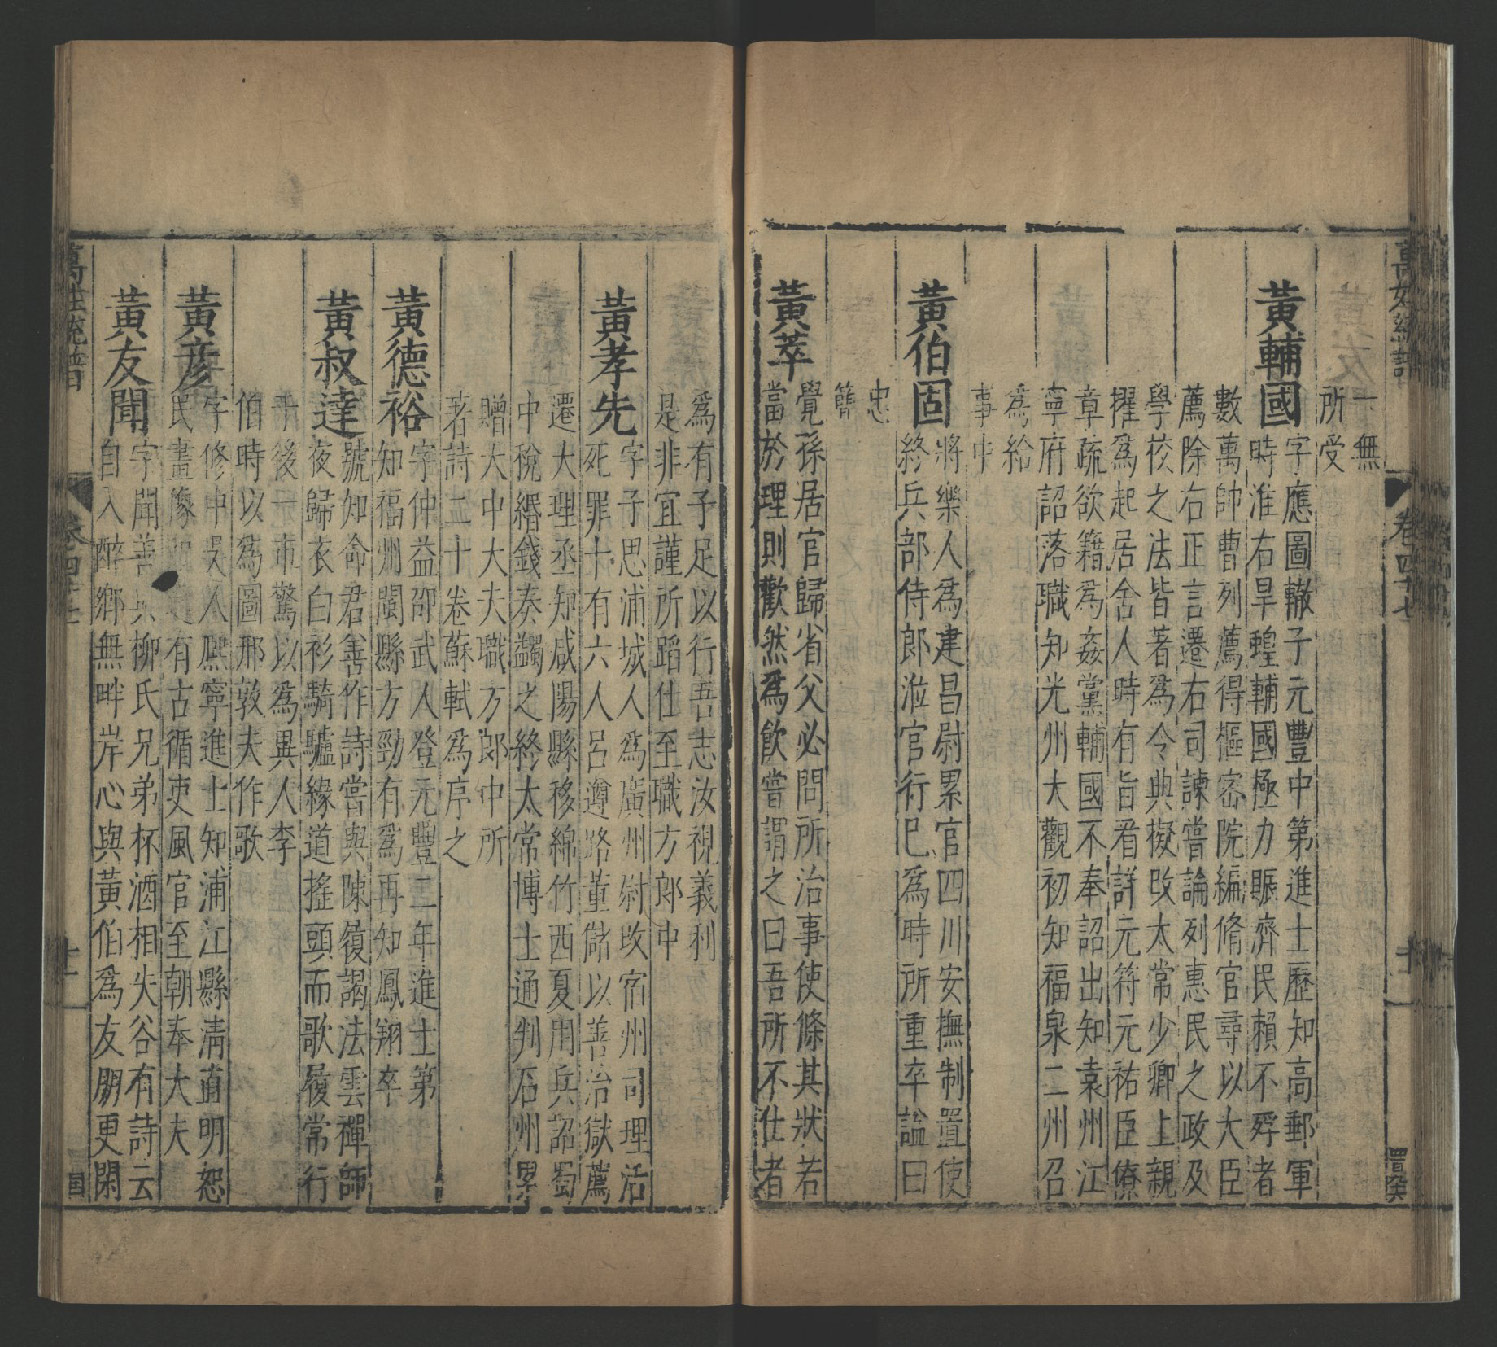 萬姓統譜
卷四十七
一無
所受
黃輔國
字應圖轍子元豐中第進士歷知高郵軍
時淮右旱蝗輔國極力賑濟民賴不殍者
數萬帥曹列薦得樞密院編脩官尋以大臣
薦除右正言遷右司諫嘗論列惠民之政及
學校之法皆著爲令典擬攺太常少卿上親
擢爲起居舍人時有旨看詳元符元祐臣僚
章疏欲籍爲姦黨輔國不奉詔出知袁州江
寧府詔落職知光州大觀初知福泉二州召
爲給
事中
黃伯固
將樂人爲建昌尉累官四川安撫制置使
終兵部侍郎涖官行巳爲時所重卒謚曰
忠
簡
黃萃
覺孫居官歸省父必問所治事使條其狀若
當於理則歡然爲飲嘗謂之曰吾所不仕者
爲有子足以行吾志汝視義利
是非宜謹所蹈仕至職方郎中
黃孝先
字子思浦城人爲廣州尉攺宿州司理活
死罪十有六人呂遵路董儲以善治獄薦
遷大理丞知咸陽縣移綿竹西夏用兵詔蜀
中稅緡錢奏蠲之終太常博士通判石州
贈大中大夫職方郎中所
著詩二十卷蘇軾爲序之
黃德裕
字仲益邵武人登元豐二年進士第
知福州閩縣方勁有爲再知鳳翔卒
黃叔達
號知命君善作詩嘗與陳履謁法雲禪師
夜歸衣白衫騎驢緣道搖頭而歌履常行
於後一市驚以爲異人李
伯時以爲圖邢敦夫作歌
黃彦
字修中吳人熙寧進士知浦江縣清直明恕
民畫像有古循吏風官至朝奉大夫
黃友聞
字聞善與柳氏兄弟杯酒相失谷有詩云
自入醉鄉無畔岸心與黃伯爲友朋更閑
萬姓統譜
卷四十七